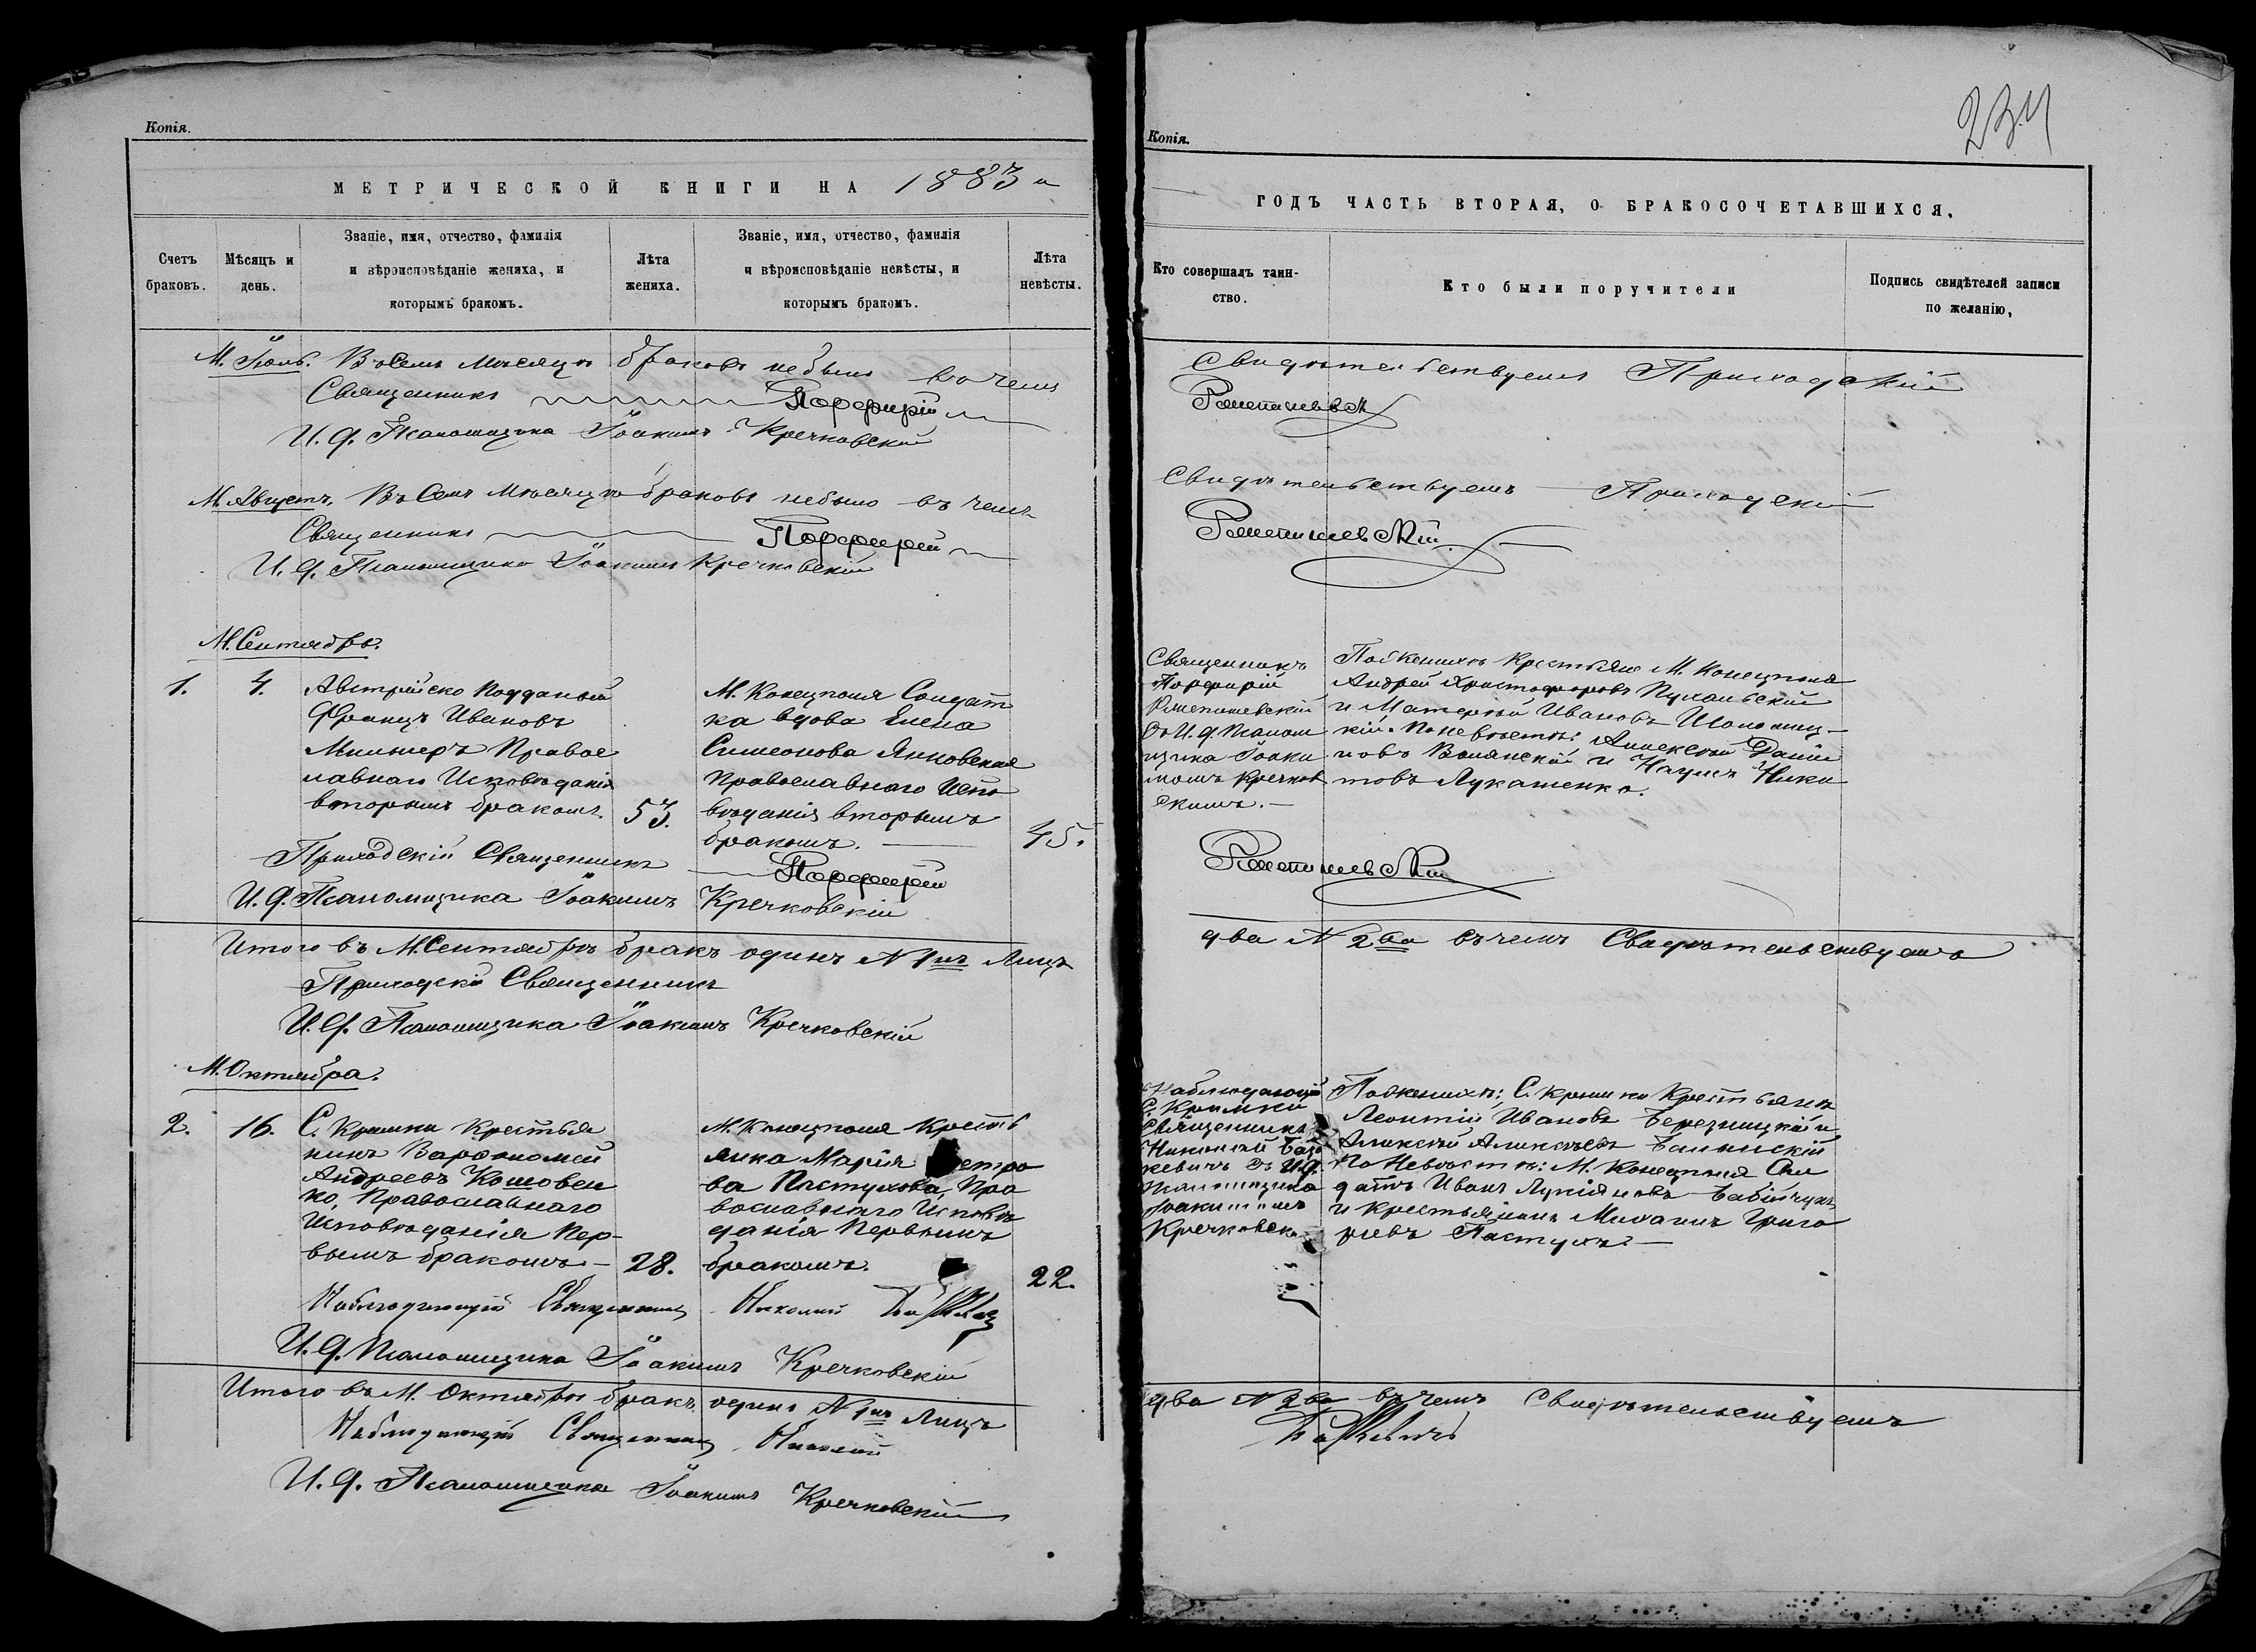 Копія.
МЕТРИЧЕСКОЙ КНИГИ НА 1883 й
Счетъ браковъ.
Мѣсяцъ и день.
Званіе, имя, отчество, фамилія и вѣроисповѣданіе жениха, и которымъ бракомъ.
Лѣта жениха.
Званіе, имя, отчество, фамилія и вѣроисповѣданіе невѣсты, и которымъ бракомъ.
Лѣта невѣсты.
М. Іюль. Въ Семъ Мѣсяцѣ браковъ небыло въ чемъ
Священникъ Порфирій
И. д. Псаломщика Іоакимъ Кречковскій
М. Августъ. Въ Семъ Мѣсяцѣ браковъ небыло въ чемъ
Священникъ Порфирій
И. д. Псаломщика Іоакимъ Кречковскій
М. Сентябрь.
1. 4. Австрійско Подданый
Францъ Ивановъ
Православнаго Исповѣданія
вторымъ бракомъ. 53.
М. Конецполя Солдат
ка вдова Елена
Симеонова Янковская
Православнаго Испо
вѣданія вторымъ
бракомъ. 45.
Приходскій Священникъ Порфирій
И. д. Псаломщика Іоакимъ Кречковскій
Итого въ М. Сентябрѣ бракъ одинъ N 1нъ Лицъ
Приходскій Священникъ
И. д. Псаломщика Іоакимъ Кречковскій
М. Октября.
2. 16. С. Кримки Крестья
нинъ Варфоломей
Андреевъ Кошовен
ко, Православнаго
Исповѣданія Пер-
вымъ бракомъ. – 28.
М. Конецполя Кресть
янка Марія Петро
ва Пастухова, Пра
вославнаго Исповѣ
данія Первымъ
бракомъ. 22.
Наблюдающій Священникъ Николай
И. д. Псаломщика Іоакимъ Кречковскій
Итого въ М. Октябрѣ бракъ одинъ N 1нъ Лицъ
Наблюдающій Священникъ Николай
И. д. Псаломщика Іоакимъ Кречковскій
Копія.
234
ГОДЪ ЧАСТЬ ВТОРАЯ, О БРАКОСОЧЕТАВШИХСЯ.
Кто совершалъ таинство.
Кто были поручители
Подпись свидѣтелей записи по желанію,
Свидѣтельствуемъ Приходскій
Свидѣтельствуемъ Приходскій
Священникъ
Порфирій
Съ И. д. Псалом
щика Іоаки
момъ Кречков
скимъ. –
По Женихѣ Крестьяне М. Конецполя
Андрей Христофоровъ
и Матерій Ивановъ
кій. По невѣстѣ: Алексѣй Даніи
ловъ Волянскій и Наумъ Ники
товъ Лукашенко.
два N 2ва въ чемъ Свидѣтельствуемъ
Наблюдающій
С. Кримки
Священникъ
Николай
кевичъ съ И.д.
Псаломщика
Іоакимомъ
Кречковск
По женихѣ; С. Кримки Крестьяне
Леонтій Ивановъ Березницкій и
Алексѣй Алексѣевъ
По Невѣстѣ: М. Конецполя Сол
датъ Иванъ Лукіяновъ Бабійчукъ
и крестьянинъ Михаилъ Григо
ріевъ Пастухъ. –
два N 2ва въ чемъ Свидѣтельствуемъ